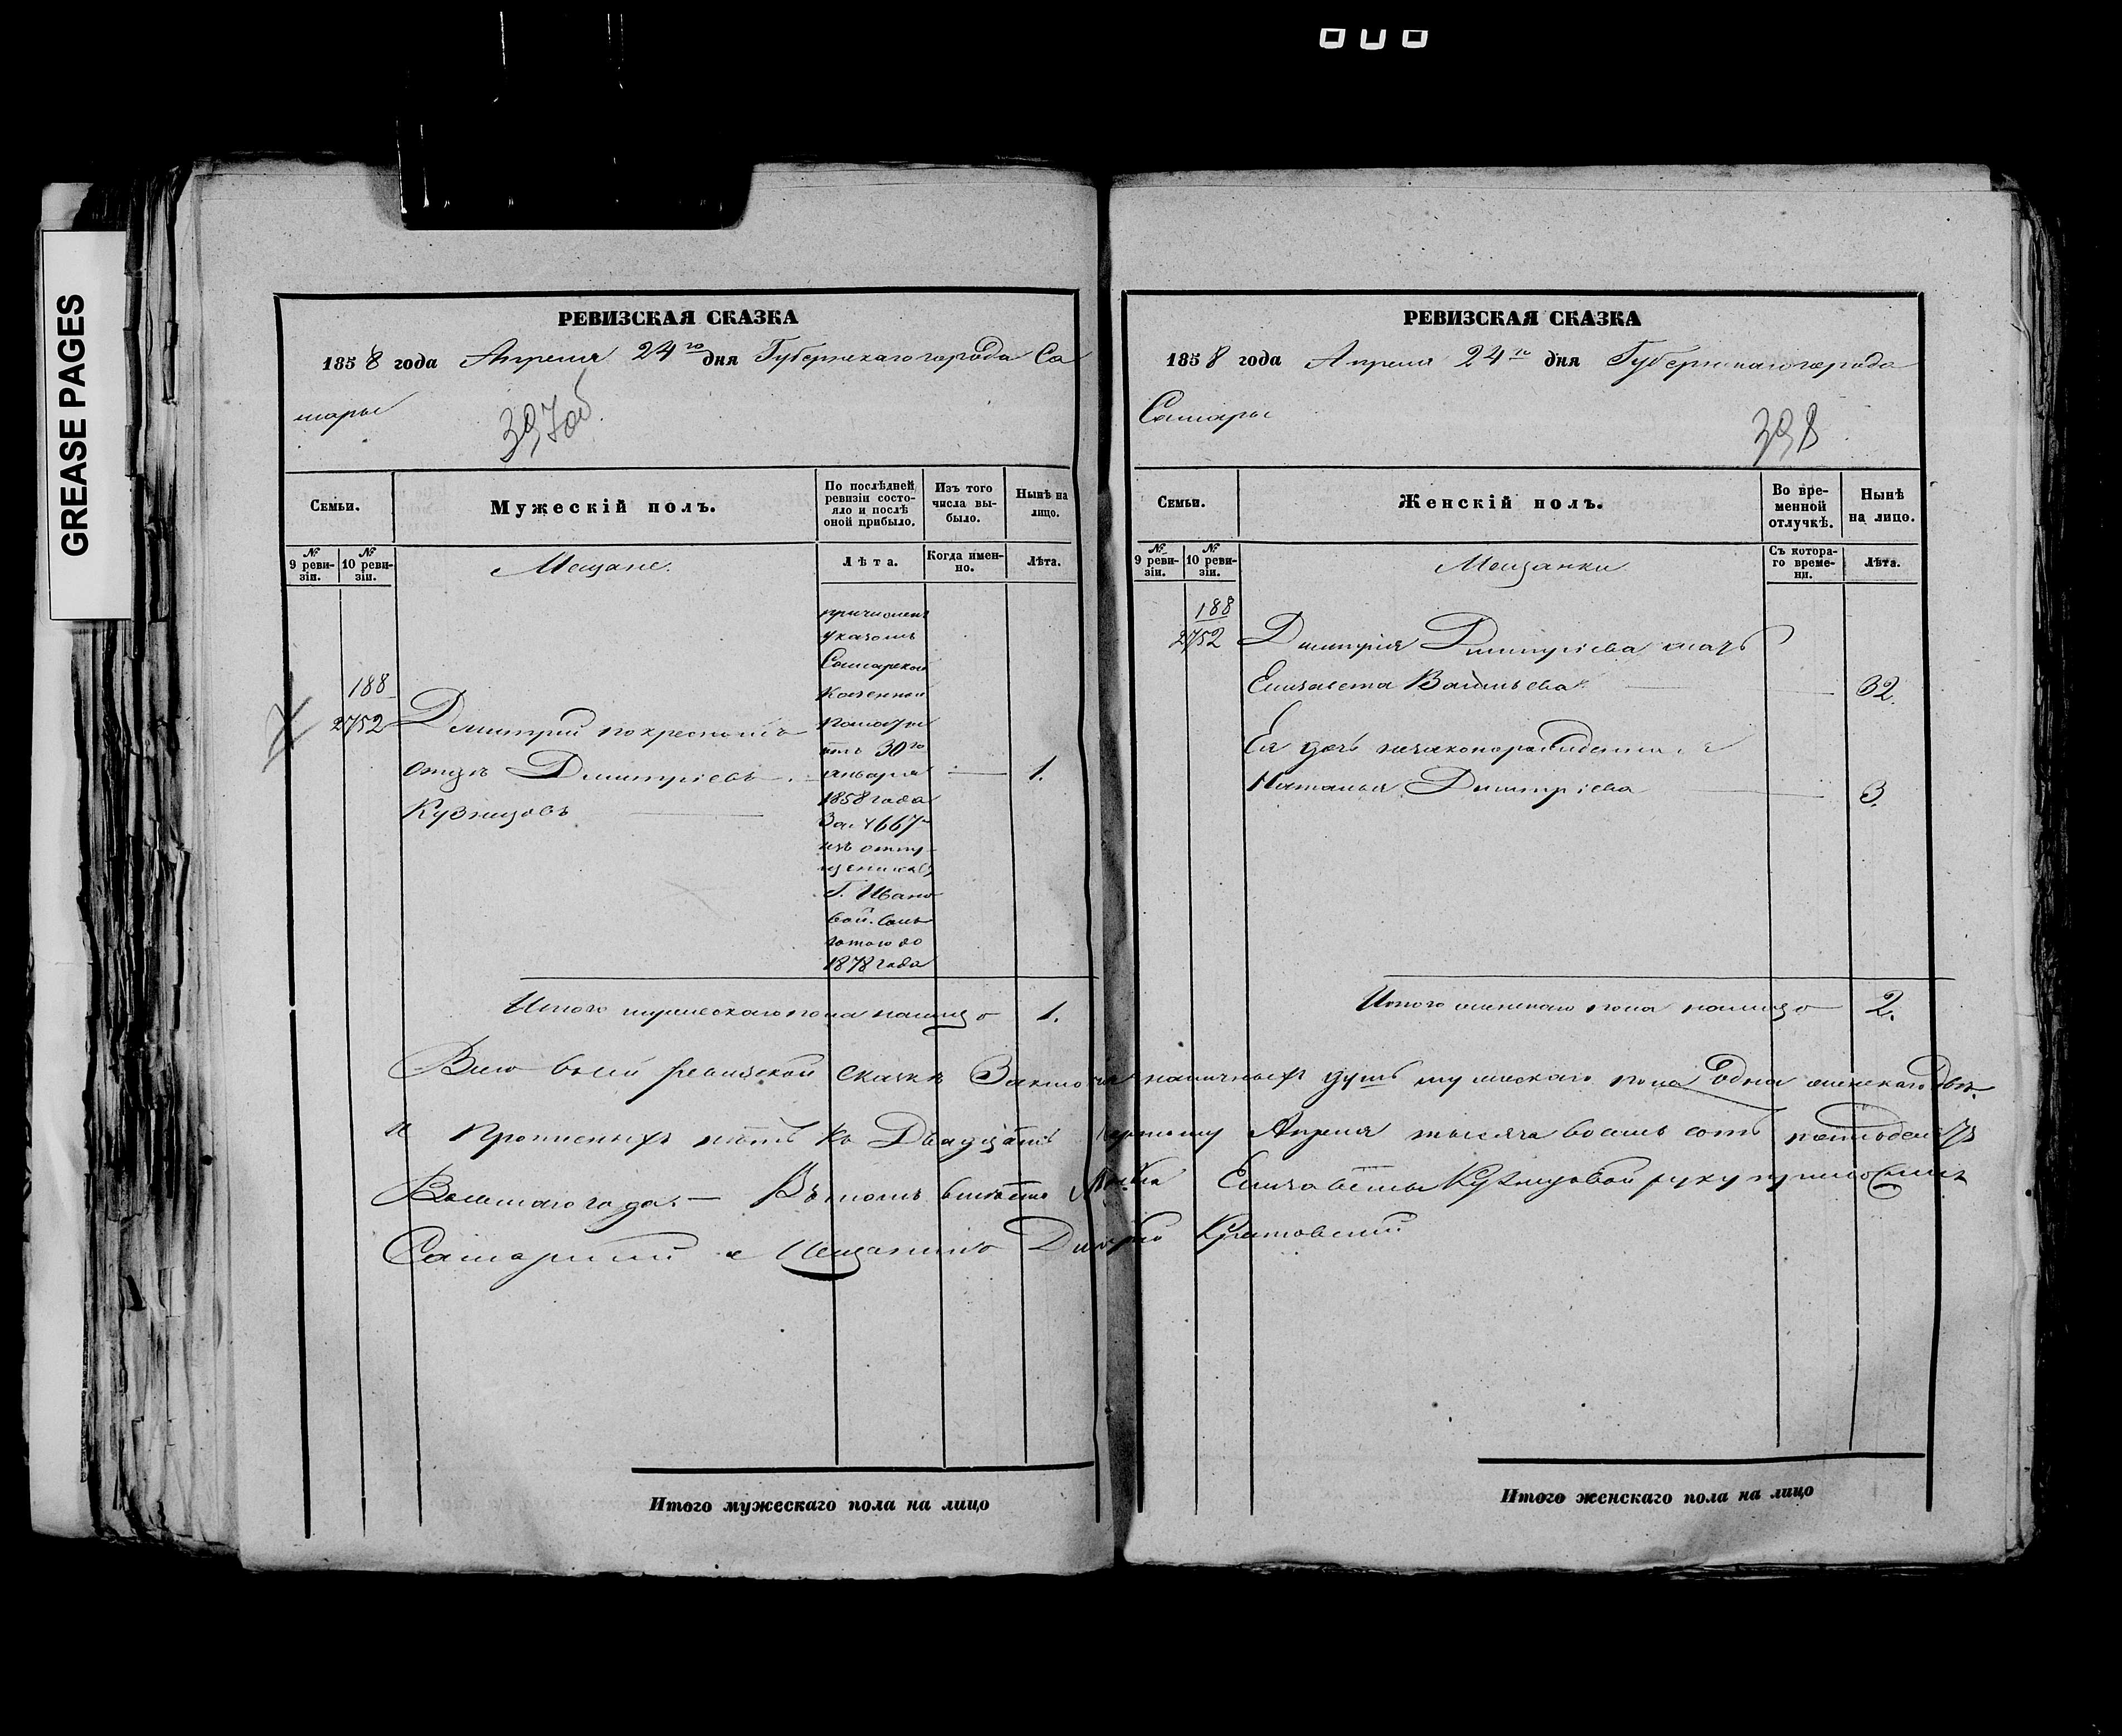 GREASE PAGES
РЕВИЗСКАЯ СКАЗКА
1858 года Апреля 24го дня Губернскаго города Са
мары
397об.
Семьи.
Мужескій полъ.
По послѣдней ревизіи состояло и послѣ оной прибыло.
Изъ того числа выбыло.
Нынѣ на лицо.
№ 9 ревизіи.
№ 10 ревизіи.
Мещане.
Лѣта.
Когда именно.
Лѣта.
188
2752
Дмитрий по крестномъ
отцѣ Дмитріевъ
Кузнецовъ
причислен
указомъ
Самарской
Казенной
Палаты
отъ 30го
января
1858 года
За № 4667
изъ отпу-
щенниковъ
Г. Ивано
вой. Съ
до
1878 года
1.
Итого мужескаго пола налицо 1.
РЕВИЗСКАЯ СКАЗКА
1858 года Апреля 24го дня Губернскаго города
Самары
398
Семьи.
Женскій полъ.
Во временной отлучкѣ.
Нынѣ на лицо.
№ 9 ревизіи.
№ 10 ревизіи.
Мещанки
Съ котораго времени.
Лѣта.
188
2752 Дмитрія Дмитріева мать
Елизавета Васильева 32
Ея дочь незаконорожденная
Наталья Дмитріева 3.
Итого женскаго пола налицо 2.
Всего въ сей ревизской сказкѣ наличныхъ душъ мужескаго пола Одна женскаго двѣ
и прописныхъ нѣтъ къ Двадцать Апреля тысяча восемь сотъ пятьдесятъ
Восьмаго года. — Въ томъ вместо Елизаветы Кузнецовой руку приложилъ
Самарский Мещанинъ
Итого мужескаго пола на лицо
Итого женскаго пола на лицо